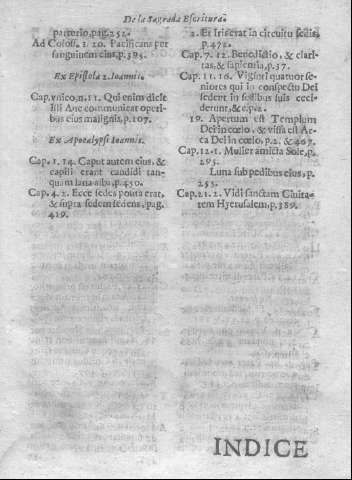 De la Sagrada Escritura.
partorio, pag. 252.
Ad Coloss. 1. 20. Pacificans per
sanguinem eius, p. 385.
Ex Epistola 2. Ioannis.
Cap. vnico, n. 11. Qui enim dicit
illi Aue communicat operi-
bus eius malignis, p. 107.
Ex Apocalypsi Ioannis.
Cap. 1. 14. Caput autem eius, &
capilli erant candidi tan-
quam lana alba, p. 450.
Cap. 4. 2. Ecce sedes posita erat,
& supra sedem sedens, pag.
419.
2. Et Iris erat in circuitu sedis,
p. 472.
Cap. 7. 12. Benedictio, & clari-
tas, & sapientia, p. 37.
Cap. 11. 16. Viginti quatuor se-
niores qui in conspectu Dei
sedent in sedibus suis ceci-
derunt, &c. p. 2.
19. Apertum est Templum
Dei in coelo, & vissa est Ar-
ca Dei in coelo, p. 2. & 407.
Cap. 12. 1. Mulier amicta Sole, p.
295.
Luna sub pedibus eius, p.
253.
Cap. 21. 2. Vidi sanctam Ciuita-
tem Hyerusalem, p. 389.
INDICE